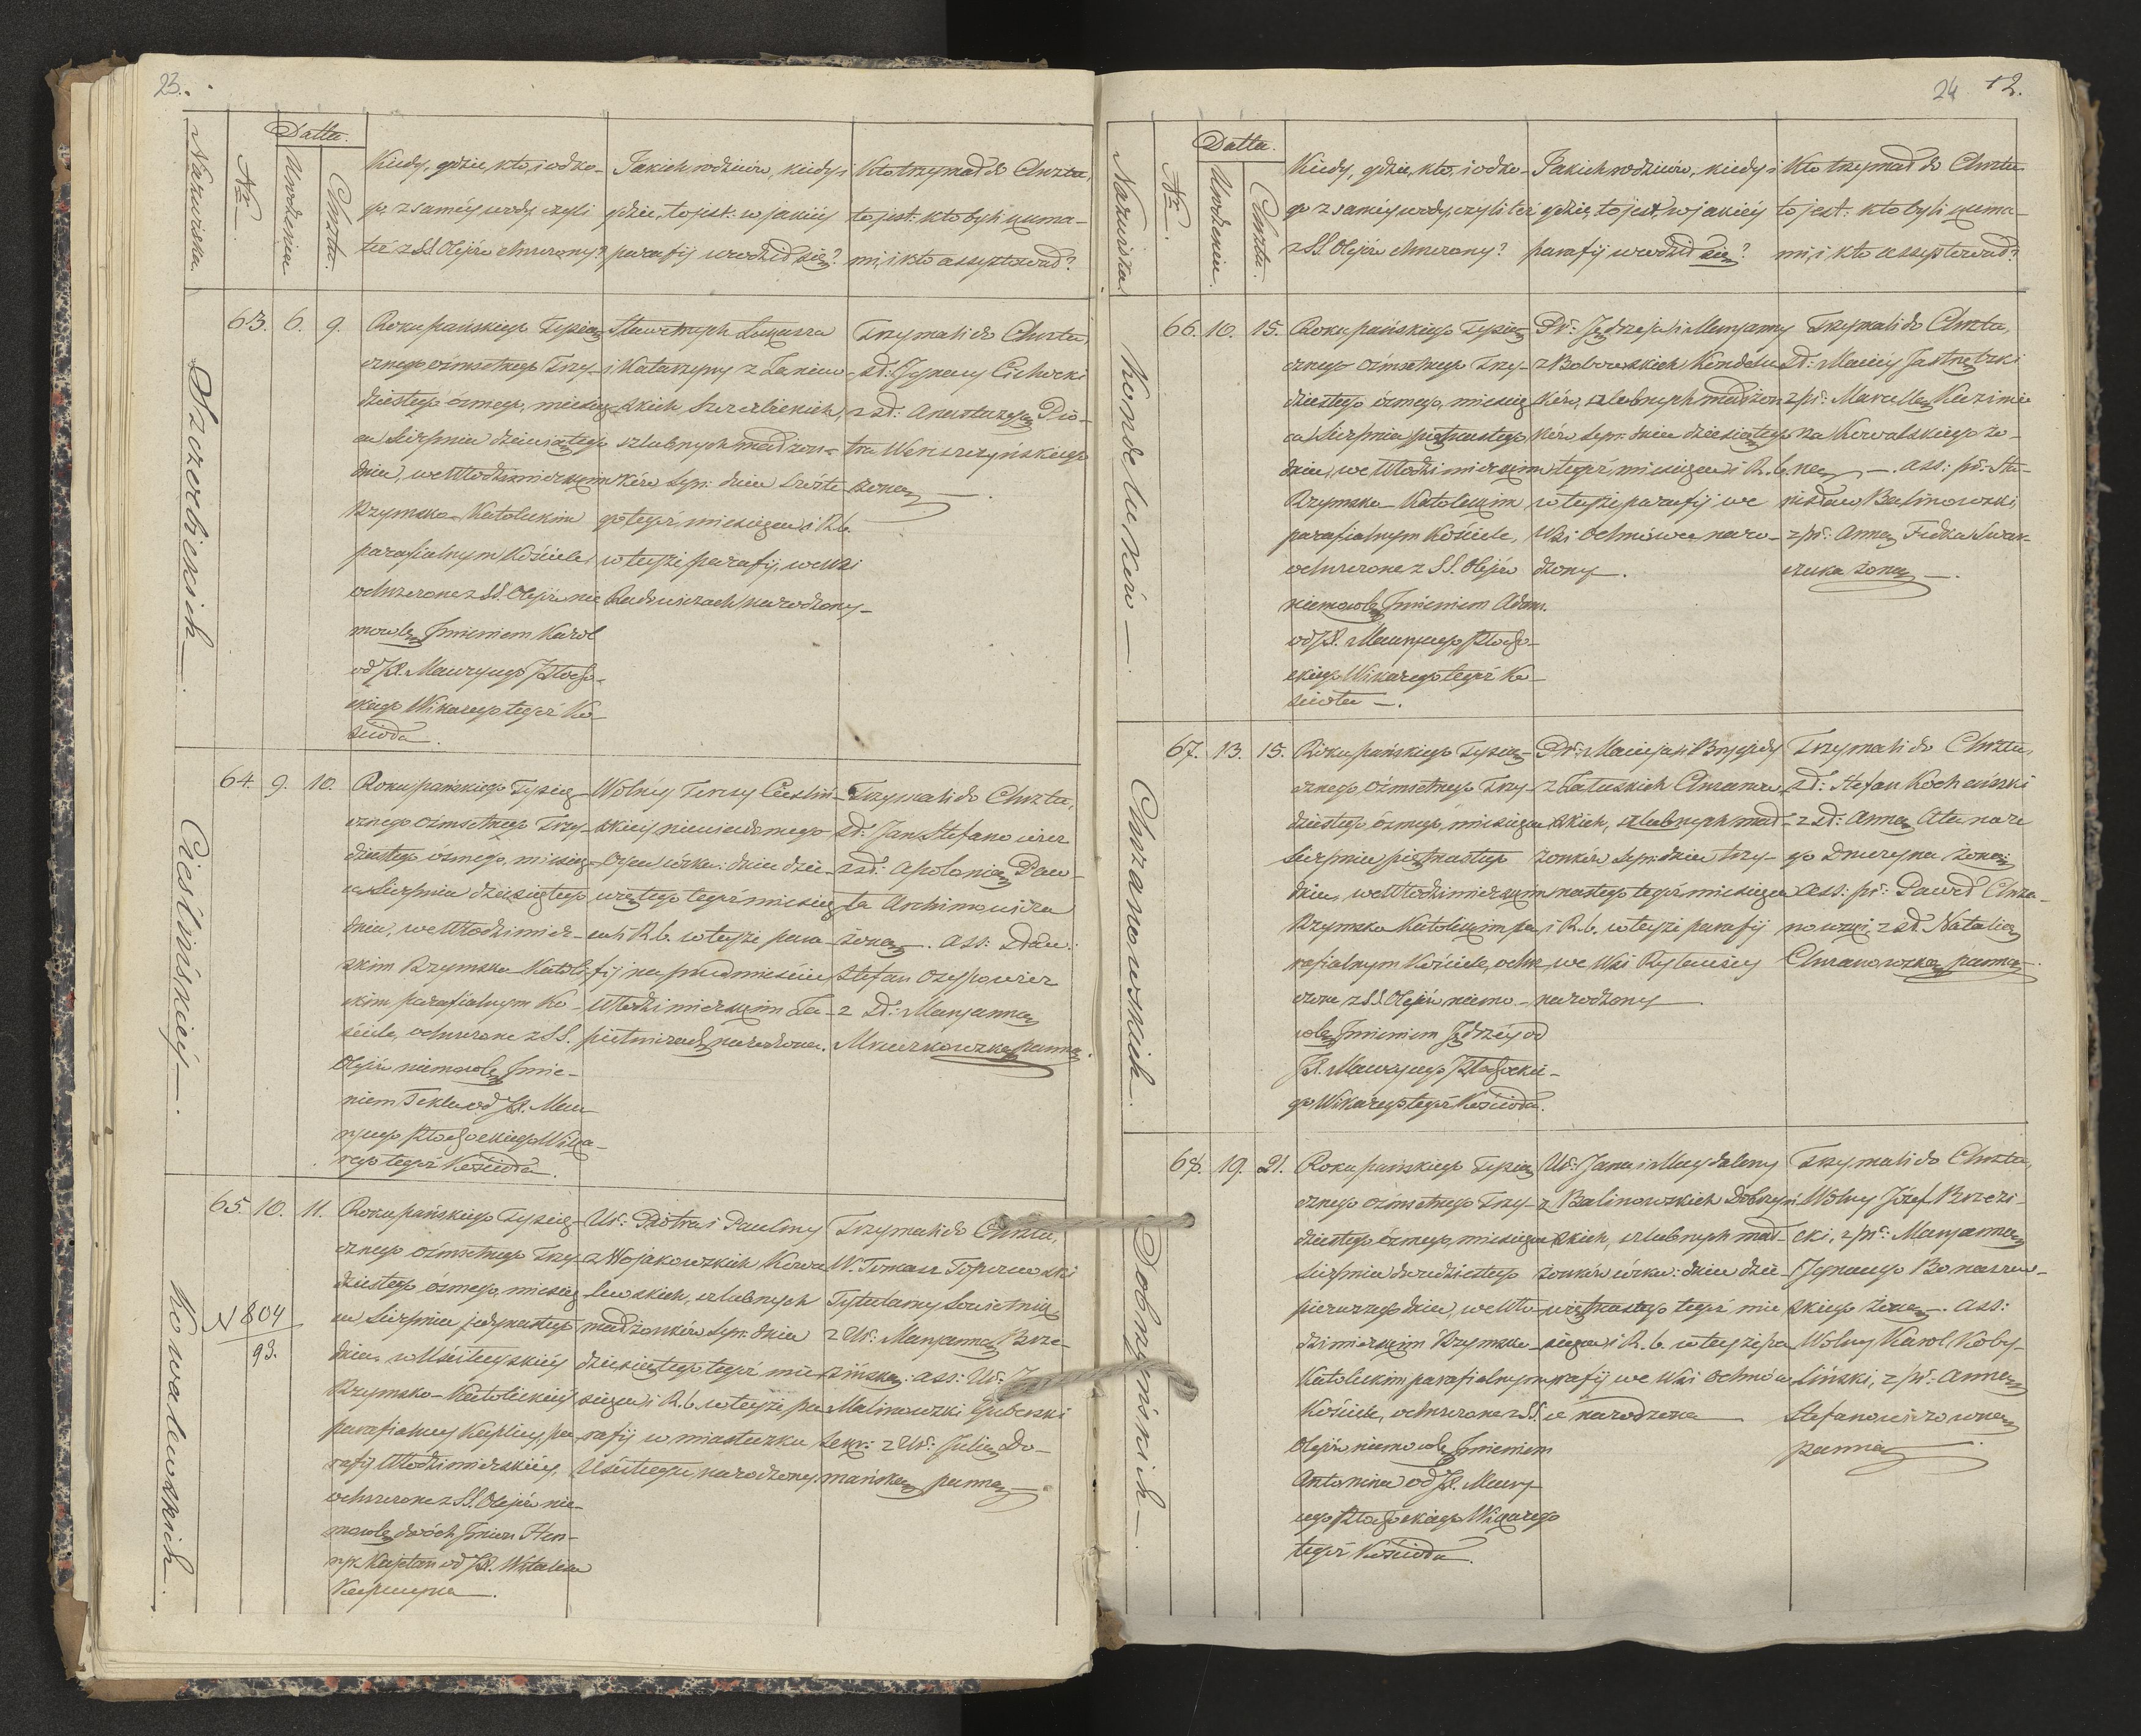 23.
Datta.
Nazwiska.
Nr.
Urodzenia
Chrztu.
Kiedy, gdzie, kto, i odko-
go, z samey wody czyli
też z SS. Olejów chrzczony?
Jakich rodziców, kiedy i
gdzie, to jest: w jakiéy
parafij urodził się?
Kto trzymał do Chrztu,
to jest: kto byli kuma-
mi, i kto assystował?
Szczerbickich
63. 6. 9.
Roku pańskiego Tysiąc-
cznego ośmsetnego Trzy-
dziestego ósmego, miesią-
ca Sierpnia dziewiątego
dnia, we Włodzimierskim
Rzymsko-Katolickim
parafialnym Kościele,
ochrzczone z SS. Olejów nie
mowlę Jmieniem Karol
od JX. Maurycego
Wikarego tegoż Ko-
ścioła.
i Katarzyny z
skich, Szczerbickich,
szlubnych małżon-
ków syn: dnia szóste-
go tegoż miesiąca i R.b.
w teyże parafij, we Wsi
narodzony
Trzymali do Chrztu,
Sz: Jgnacy Cichocki
z Sz: Anastazyą Pio-
tra Wereszczyńskiego
żoną.
Cieślińskiéy
64. 9. 10.
Roku pańskiego Tysiąc-
cznego ośmsetnego Trzy-
dziestego ósmego, miesią-
ca Sierpnia dziesiątego
dnia, we Włodzimier-
skim Rzymsko Katoli-
ckim parafialnym Ko-
ściele, ochrzczone z SS.
Olejów niemowlę Jmie-
niem Tekla od JX. Mau-
rycego Wika-
rego tegoż Kościoła.
Wolnéy Teresy Cieśliń-
skiéy niewiadomego
Oyca córka: dnia dzie-
więtego tegoż miesią-
ca i R.b. w teyże para-
fij na przedmieściu
Włodzimierskim
narodzona.
Trzymali do Chrztu,
Sz: Jan Stefanowicz
z Sz: Apolonią Paw-
ła Archimowicza
żoną. Ass:
Stefan Osypowicz
z Sz: Maryanną
Mrozkowską panną.
Kowalewskich.
65. 10. 11.
N 804
93.
Roku pańskiego Tysiąc-
cznego ośmsetnego Trzy-
dziestego ósmego, miesią-
ca Sierpnia jedynastego
dnia, w Uściługskiéy
Rzymsko-Katolickiéy
parafialney Kaplicy pa-
rafij Włodzimierskiéy,
ochrzczone z SS. Olejów nie-
mowlę dwóch Jmion Hen-
ryk Kajetan od JX. Witalisa
Kapucyna.
Ur: Piotra i Pauliny
z Wojakowskich Kowa-
lewskich, szlubnych
małżonków syn: dnia
dziesiątego tegoż mie-
siąca i R.b. w teyże pa-
rafij w miasteczku
Uściługu, narodzony.
Trzymali do Chrztu,
W. Tomasz Toporowski
Tytularny Sowietnik
z Ur: Maryanną Brze-
zińską: ass: Ur:
Malinowski Guberski
Sekr: z Ur: Julią Do-
mańską panną.
24 12.
Datta.
Nazwiska.
Nr.
Urodzenia.
Chrztu.
Kiedy, gdzie, kto, i odko-
go z saméy wody, czyli też
z SS. Olejów chrzczony?
Jakich rodziców, kiedy i
gdzie, to jest, w jakiéy
parafij urodził się?
Kto trzymał do Chrztu
to jest: kto byli kuma-
mi, i kto assystował?
Kondelusków
66. 10. 15.
Roku pańskiego Tysiąc-
cznego ośmsetnego Trzy-
dziestego ósmego, miesią-
ca Sierpnia piętnastego
dnia, we Włodzimierskim
Rzymsko-Katolickim
parafialnym Kościele,
ochrzczone z SS. Olejów
niemowlę Jmieniem Adam
od JX. Maurycego
Wikarego tegoż Ko-
ścioła.
Pr: Jędrzeja i Maryanny
z Bobrowskich Kondelus-
ków, szlubnych małżon-
ków syn: dnia dziesiątego
tegoż miesiąca i R.b.
w teyże parafij we
Wsi Ochnówce naro-
dzony.
Trzymali do Chrztu,
Sz: Maciéy Jastrzębski
z pr: Marcellą Kazimie-
rza Kowalskiego żo-
ną. ass: pr: Sta-
nisław Balinowski,
z pr: Anną Fedka
żoną.
Chrzanowskich
67. 13. 15.
Roku pańskiego Tysiąc-
cznego, ośmsetnego Trzy-
dziestego, ósmego, miesiąca
Sierpnia piętnastego
dnia, we Włodzimierskim
Rzymsko Katolickim pa-
rafialnym Kościele, ochrz-
czone z SS. Olejów niemo-
wlę Jmieniem Jędrzéy od
JX. Maurycego
Wikarego tegoż Kościoła.
Pr: Macieja i Brygidy
z Załuskich Chrzanow-
skich, szlubnych mał-
żonków syn: dnia trzy-
nastego tegoż miesiąca
i R.b. w teyże parafij
we Wsi
narodzony
Trzymali do Chrztu,
Sz: Stefan Kochański
z Sz: Anną
żoną:
ass: pr: Paweł Chrza-
nowski, z Sz: Natalią
Chrzanowską panną.
Dobrzyńskich
68. 19. 21.
Roku pańskiego Tysiąc-
cznego ośmsetnego Trzy-
dziestego ósmego, miesiąca
Sierpnia dwudziestego
pierwszego dnia, we Wło-
dzimierskim Rzymsko
Katolickim parafialnym
Kościele, ochrzczone z SS.
Olejów niemowlę Jmieniem
Antonina od JX. Maury-
cego Wikarego
tegoż Kościoła.
Ur: Jana i Magdaleny
z Balinowskich Dobrzyń-
skich, szlubnych mał-
żonków córka: dnia dzie-
więtnastego tegoż mie-
siąca i R.b. w teyże pa-
rafij we Wsi Ochnów-
ce narodzona
Trzymali do Chrztu,
Wolny Józef Brzezi-
cki, z pr: Maryanną
Jgnacego
żoną. ass:
Wolny Karol Koby-
liński, z pr: Anną
Stefanowiczowną
panną.